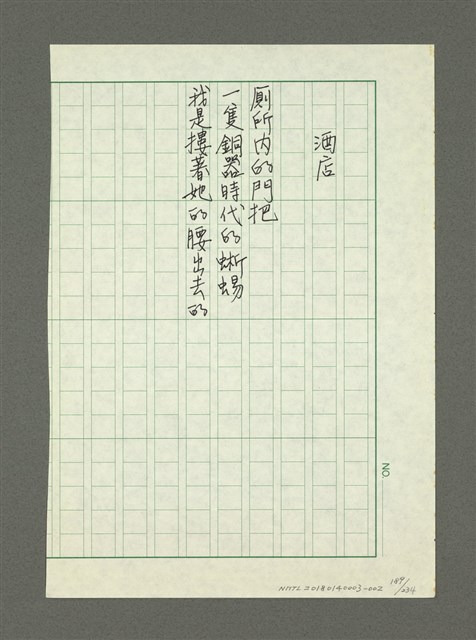 酒店
厠所内的門把
一隻銅器時代的蜥蜴
我是摟著她的腰出去的
NO.
NMTL20180140003-002
189/234